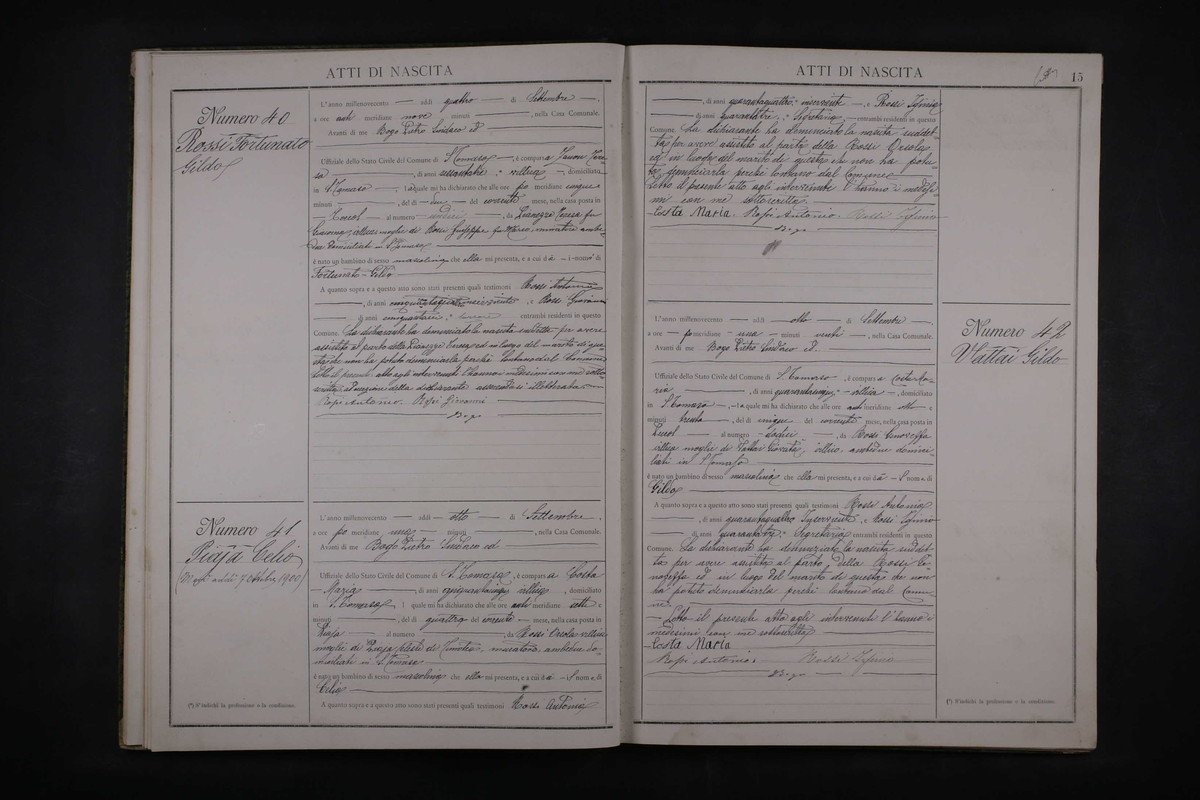 ATTI DI NASCITA
Numero 40
Rossi Fortunato
Gildo
L'anno millenovecento — addì quattro — di Settembre —,
a ore anti meridiane nove minuti —, nella Casa Comunale.
Avanti di me Bogo Pietro Sindaco ed
Uffiziale dello Stato Civile del Comune di S. Tomaso —, è comparsa
—, di anni sessanta —, domiciliata
in S. Tomaso —, la quale mi ha dichiarato che alle ore po meridiane cinque e
minuti —, del dì due — del corrente mese, nella casa posta in
— al numero undici —, da Pianezze Teresa fu
Giacomo, villica moglie di Rossi Giuseppe fu Marco, muratore ambe-
due domiciliati in S. Tomaso
è nato un bambino di sesso mascolino che ella mi presenta, e a cui dà i nomi di
Fortunato-Gildo
A quanto sopra e a questo atto sono stati presenti quali testimoni Rossi Antonio
—, di anni e Rossi Giovanni
di anni entrambi residenti in questo
Comune. La dichiarante ha denunciato la nascita suddetta per avere
assistito al parto della Pianezze Teresa ed in luogo del marito di que-
sta che non ha potuto denunciarla perché lontano dal Comune
Letto il presente atto agli intervenuti l'hanno i medesimi con me sotto-
scritto ad eccezione della dichiarante
Rossi Antonio. Rossi Giovanni
Bogo
Numero 41
Piaja Celio
7 Ottobre 1900)
L'anno millenovecento — addì otto — di Settembre —,
a ore po meridiane una — minuti —, nella Casa Comunale.
Avanti di me Bogo Pietro Sindaco ed
Uffiziale dello Stato Civile del Comune di S. Tomaso, è comparsa Costa
Maria —, di anni villica, domiciliata
in S. Tomaso, la quale mi ha dichiarato che alle ore anti meridiane sette e
minuti —, del dì quattro del corrente — mese, nella casa posta in
Piaja — al numero —, da Rossi Orsola villica
moglie di Piaja di Timoteo, muratore, ambedue do-
miciliati in S. Tomaso
è nato un bambino di sesso mascolino che ella mi presenta, e a cui dà il nome di
Celio
A quanto sopra e a questo atto sono stati presenti quali testimoni Rossi Antonio
(*) S'indichi la professione o la condizione.
ATTI DI NASCITA
15
—, di anni quarantaquattro, inserviente —, e Rossi
— di anni quarantatre, Segretario — entrambi residenti in questo
Comune. La dichiarante ha denunciato la nascita suddet-
ta per avere assistito al parto della Rossi Orsola
ed in luogo del marito di questa che non ha potu-
to denunciarla perché lontano dal Comune
Letto il presente atto agli intervenuti l'hanno i medesi-
mi con me sottoscritto
Costa Maria. Rossi Antonio. Rossi
Bogo
Numero 42
Mattai Gildo
L'anno millenovecento — addì otto — di Settembre —,
a ore — po meridiane — una — minuti venti —, nella Casa Comunale.
Avanti di me Bogo Pietro Sindaco ed
Uffiziale dello Stato Civile del Comune di S. Tomaso, è comparsa Costa Ma-
ria —, di anni villica —, domiciliata
in S. Tomaso —, la quale mi ha dichiarato che alle ore anti meridiane otto — e
minuti trenta —, del dì cinque del corrente mese, nella casa posta in
— al numero dodici —, da Rossi Genoveffa
villica moglie di villico, ambedue domici-
liati in S. Tomaso
è nato un bambino di sesso mascolino che ella mi presenta, e a cui dà il nome di
Gildo
A quanto sopra e a questo atto sono stati presenti quali testimoni Rossi Antonio
—, di anni quarantaquattro Inserviente e Rossi
— di anni quarantatre, Segretario entrambi residenti in questo
Comune. La dichiarante ha denunziato la nascita suddet-
ta per avere assistito al parto della Rossi Ge-
noveffa ed in luogo del marito di questa che non
ha potuto denunciarla perché lontano dal Comu-
ne.
Letto il presente atto agli intervenuti l'hanno i
medesimi con me sottoscritto
Costa Maria
Rossi Antonio. Rossi
Bogo
(*) S'indichi la professione o la condizione.